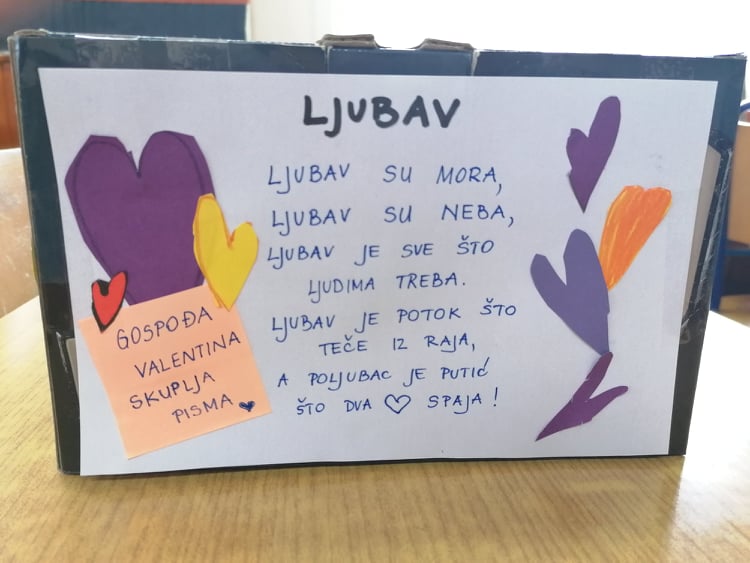 LJUBAV
LJUBAV SU MORA,
LJUBAV SU NEBA,
LJUBAV JE SVE ŠTO
LJUDIMA TREBA.
LJUBAV JE POTOK ŠTO
TEČE IZ RAJA,
A POLJUBAC JE PUTIĆ
ŠTO DVA ♡ SPAJA!
GOSPOĐA
VALENTINA
SKUPLJA
PISMA ♥